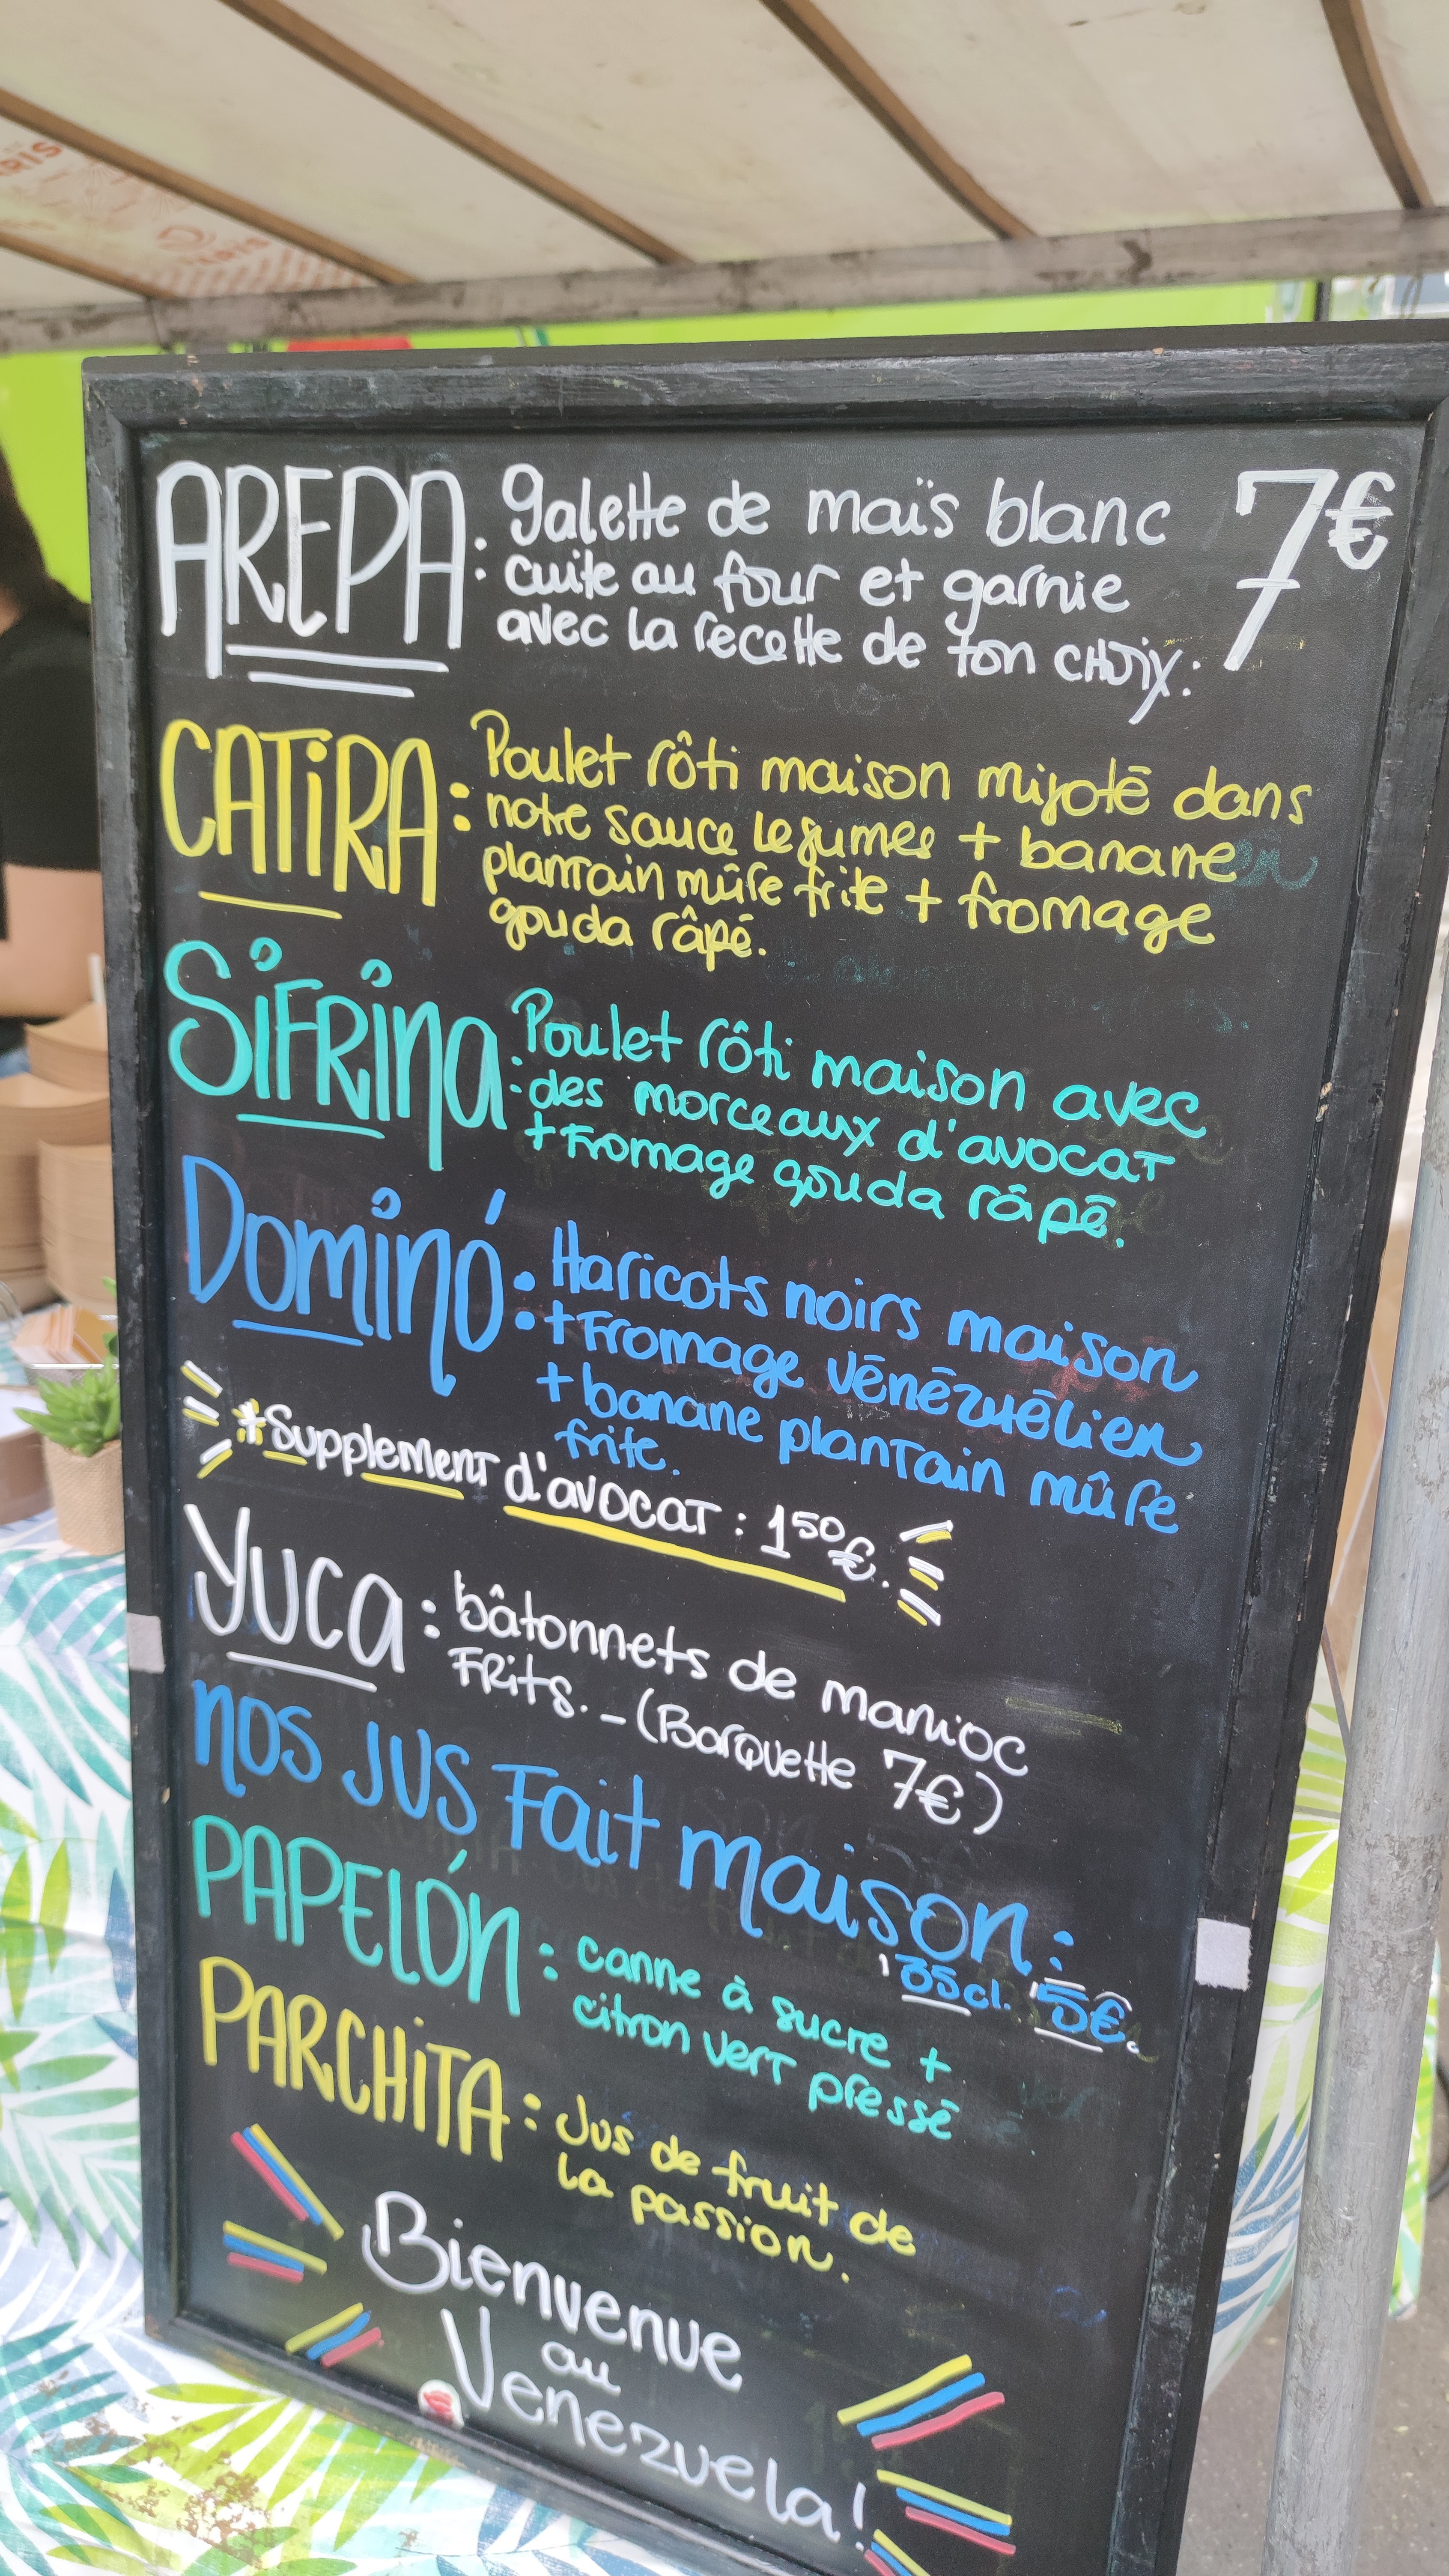 AREPA: galette de maïs blanc 7€
cuite au four et garnie
avec la recette de ton choix:
CATIRA: Poulet rôti maison mijoté dans
notre sauce legumes + banane
plantain mûre frite + fromage
gouda râpé.
SIFRINA: Poulet rôti maison avec
des morceaux d'avocat
+ Fromage gouda râpé.
DOMINÓ: Haricots noirs maison
+ Fromage vénézuélien
+ banane plantain mûre
frite.
+ Supplement d'avocat: 150€.
YUCA: bâtonnets de manioc
FRits. - (Barquette 7€)
nos JUS Fait maison:
35cl. 5€.
PAPELÓN: canne à sucre +
citron vert pressé
PARCHITA: Jus de fruit de
la passion.
Bienvenue
au
Venezuela!